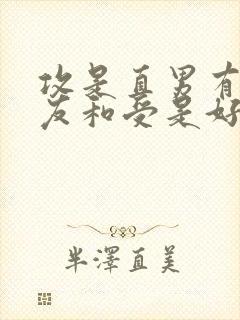 攻是直男有
友和受是好
半澤直美